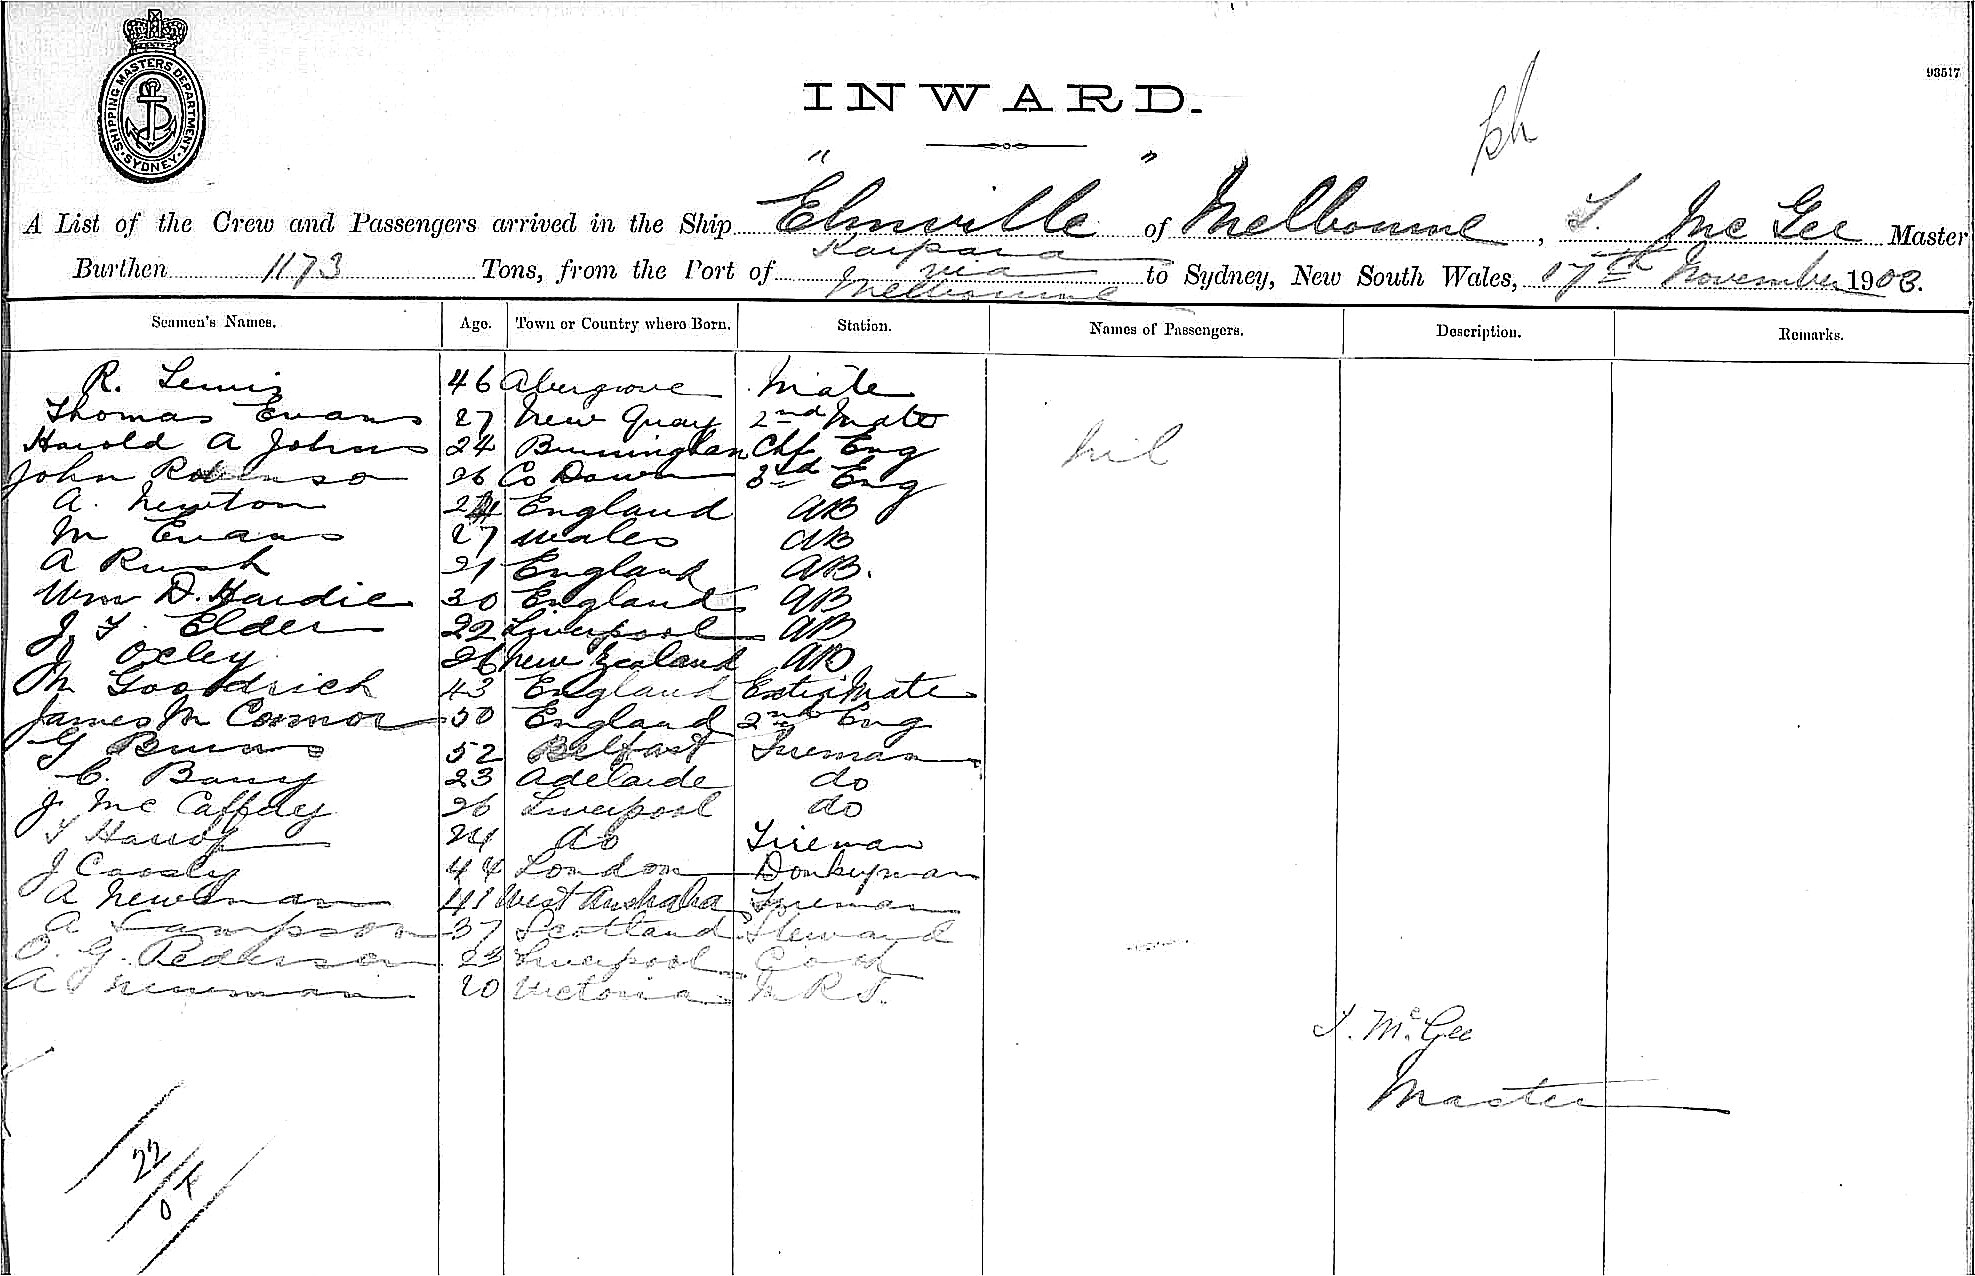 SHIPPING MASTERS DEPARTMENT. SYDNEY
93517
INWARD.
" "
A List of the Crew and Passengers arrived in the Ship Elmville of Melbourne, T. Mc Gee Master
Kaipara
Burthen 1173 Tons, from the Port of via to Sydney, New South Wales, 17th November 1903.
Melbourne
Seamen's Names. Age. Town or Country where Born. Station. Names of Passengers. Description. Remarks.
R. Lewis 46 Mate
Thomas Evans 27 New Quay 2nd Mate
Harold A Johns 24 Chf Eng nil
John Robinson 26 Co Down 3rd Eng
A. Newton 24 England AB
M Evans 27 Wales AB
A Rush 21 England AB.
Wm D. Hardie 30 England AB
J. F. Elder 22 Liverpool AB
J Oxley 26 New Zealand AB
M Goodrick 43 England Extra Mate
James M Connor 50 England 2nd Eng
G Burns 52 Belfast Fireman
C. Barry 23 Adelaide do
J. Mc Caffrey 26 Liverpool do
T Harrop 24 do Fireman
J 44 London Donkeyman
A Newman 41 West Australia Fireman
A Sampson 37 Scotland Steward
O. G. Pederson 23 Liverpool Cook
A Newman 20 Victoria M R S.
T. McGee
Master
22